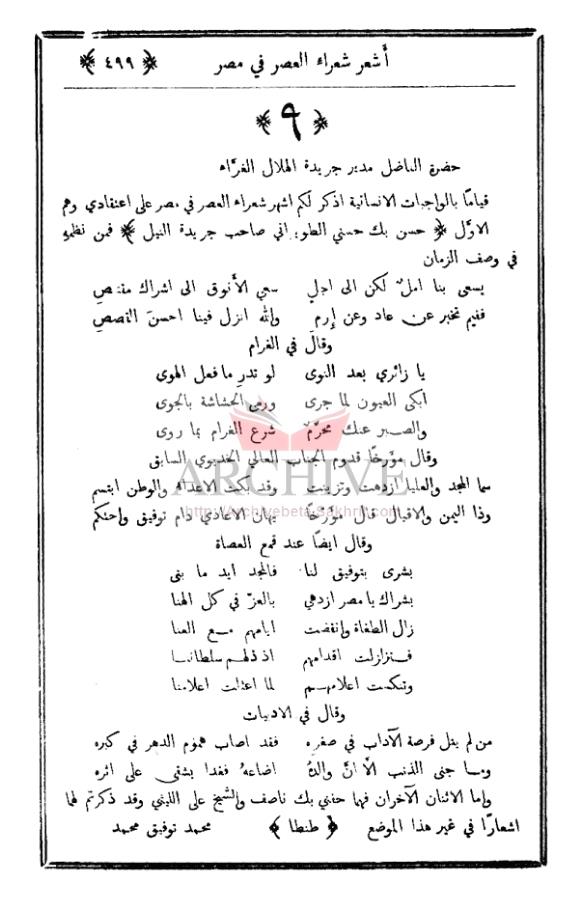 أشعر شعراء العصر في مصر ﴿ ٤٩٩ ﴾
﴿ ٩ ﴾
حضرة الفاضل مدير جريدة الهلال الغرَّاء
قيامًا بالواجبات الانسانية اذكر لكم اشهر شعراء العصر في مصر على اعتقادي وهم
الاوَّل ﴿ حسن بك حسني الطويراني صاحب جريدة النيل ﴾ فمن نظمهِ
في وصف الزمان
يسعى بنا املٌ لكن الى اجلٍ سعي الأنوق الى اشراك مقتنصِ
ففيم تخبر عن عاد وعن إرم والله انزل فينا احسنَ القصصِ
وقال في الغرام
يا زائري بعد النوى لو تدرِ ما فعل الهوى
ابكى العيون لما جرى ورمى الحشاشة بالجوى
والصبر عنك محرَّمٌ شرع الغرام بما روى
وقال مؤرخًا قدوم الجناب العالي الخديوي السابق
سما المجد والعليا ازدهت وتزينت وقد بكت الاعداء والوطن ابتسم
وذا اليمن والاقبال قال مؤرّخًا بهان الاعادي دام توفيق واحتكم
وقال ايضًا عند قمع العصاة
بشرى بتوفيق لنا فالمجد ايد ما بنى
بشراك يا مصر ازدهي بالعزّ في كل الهنا
زال الطغاة وانقضت ايامهم مع العنا
فتزلزلت اقدامهم اذ ذلهم سلطاننا
وتنكست اعلامهم لما اعتلت اعلامنا
وقال في الادبيات
من لم ينل فرصة الآداب في صغره فقد اصاب هموم الدهر في كبره
وما جنى الذنب الا انَّ والدهُ اضاعهُ فغدا يشقى على اثره
وإما الاثنان الآخران فهما حفني بك ناصف والشيخ علي الليثي وقد ذكرتم لهما
اشعارًا في غير هذا الموضع ﴿ طنطا ﴾ محمد توفيق محمد
ARCHIVE
http://Archivebeta.Sakhrit.com